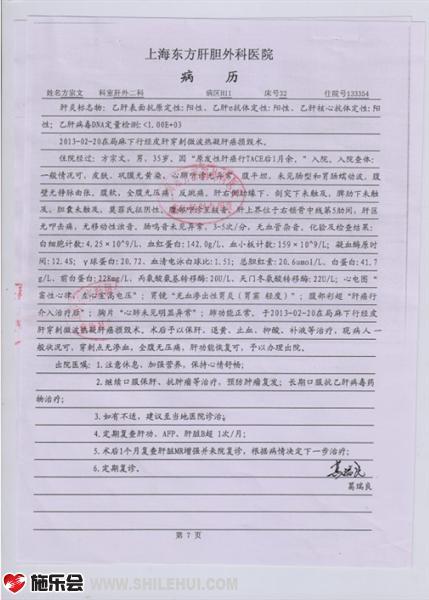 上海东方肝胆外科医院
病 历
姓名方宗文 科室肝外二科 病区H11 床号32 住院号133354
肝炎标志物：乙肝表面抗原定性:阳性、乙肝e抗体定性:阳性、乙肝核心抗体定性:阳
性；乙肝病毒DNA定量检测:<1.00E+03
2013-02-20在局麻下行经皮肝穿刺微波热凝肝癌损毁术。
住院经过：方宗文，男，35岁，因“原发性肝癌行TACE后1月余，”入院，入院查体：
一般情况可，皮肤、巩膜无黄染，心肺听诊无异常，腹平坦，未见肠型和胃肠蠕动波，腹
壁无静脉曲张，腹软，全腹无压痛、反跳痛，肝右侧肋缘下、剑突下未触及，脾肋下未触
及，胆囊未触及，莫菲氏征阴性，腹部叩诊呈鼓音，肝上界位于右锁骨中线第5肋间，肝区
无叩击痛，无移动性浊音，肠鸣音未见异常，3-5次/分，无血管杂音，化验及检查结果：
白细胞计数4.25×10^9/L，血红蛋白:142.0g/L，血小板计数:159×10^9/L；凝血酶原时
间:12.4S；γ球蛋白:20.72、血清蛋白电泳白球比:1.51；总胆红素:20.6umol/L、白蛋白:41.7
g/L，前白蛋白:228mg/L，丙氨酸氨基转移酶:20U/L，天门冬氨酸转移酶:22U/L；心电图“
窦性心律，左心室高电压”；胃镜“无血渗出性胃炎（胃窦 轻度）”；腹部彩超“肝癌行
介入治疗后”；胸片“心肺未见明显异常”；肺功能正常。于2013-02-20在局麻下行经皮
肝穿刺微波热凝肝癌损毁术。术后予以保肝、退黄、止血、抑酸、补液等治疗，现病人一
般状况可，穿刺点无渗血，全腹无压痛，肝功能恢复可，予以办理出院。
出院医嘱：1.注意休息，加强营养，保持心情舒畅；
2.继续口服保肝、抗肿瘤等治疗，预防肿瘤复发；长期口服抗乙肝病毒药
物治疗；
3.如有不适，建议至当地医院诊治；
4.定期复查肝功、AFP、肝脏B超 1次/月；
5.术后1个月复查肝脏MR增强并来院复诊，根据病情决定下一步治疗；
6.定期复诊。
葛瑞良
葛瑞良
第 7 页
施乐会
WWW.SHILEHUI.COM